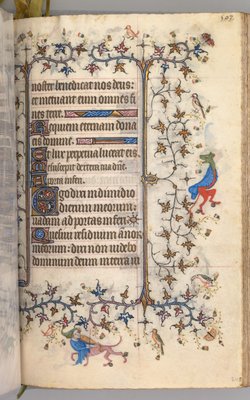 noster benedicat nos deus:
et metuant eum omnes fi
nes terre.
Requiem eternam dona
eis domine.
Et lux perpetua luceat eis.
a porta inferi.
Ego dixi in dimidio
dierum meorum:
vadam ad portas inferi
Quesivi residuum annor
meorum: dixi non videbo
dominum deum in terra vi